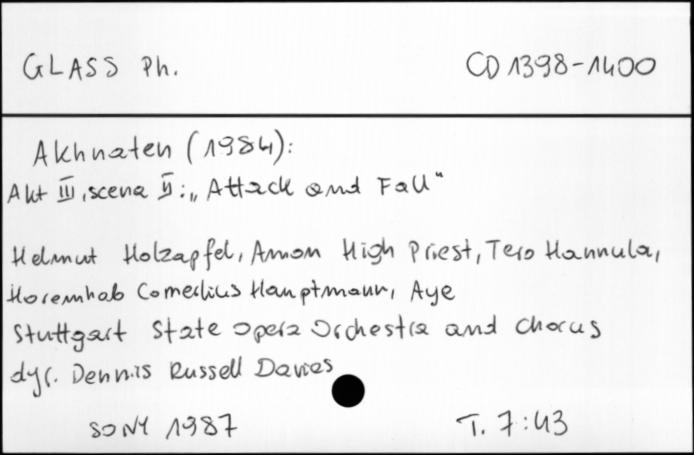 GLASS Ph.
CD 1398-1400
Akhnaten (1984):
Akt III, scena II: „Attack and Fall"
Helmut Holzapfel, Amon High Priest, Tero Hannula,
Horemhab Cornelius Hauptmann, Aye
Stuttgart State Opera Orchestra and Chorus
dyr. Dennis Russell Davies
SONY 1987
T. 7:43